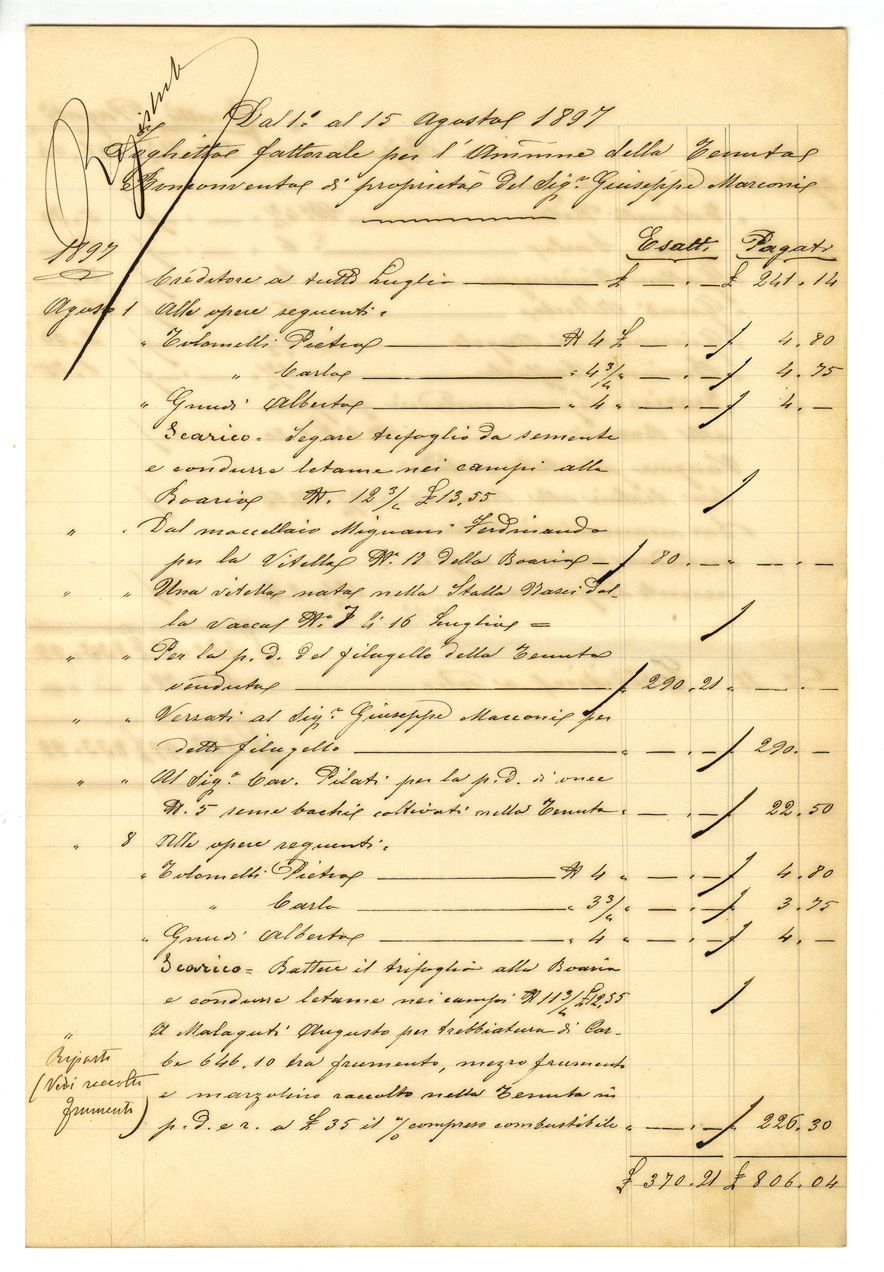 Registrato
Dal 1º al 15 Agosto 1897
Foghetto fattorale per l'Ammne della Tenuta
Bonconvento di proprietà del Sigr Giuseppe Marconi
1897
Esatti. Pagati
Creditore a tutto Luglio £ — . — £ 241. 14
Agosto 1 Alle opere seguenti:
" Tolomelli Pietro N 4 £ — . — 4. 80
" Carlo " 4 3/4 " — . — 4. 75
" Gnudi Alberto " 4 " — . — 4. —
Scarico = Segare trifoglio da semente
e condurre letame nei campi alla
Boaria N. 12 3/4 £ 13,55
" " Dal maccellaio Mignani Ferdinando
per la Vitella Nº 12 della Boaria — 80. — " — . —
" " Una vitella nata nella Stalla Nasci dal-
la vacca Nº 7 li 16 Luglio =
" " Per la p. d. del filugello della Tenuta
venduto 290. 21 " — . —
" " Versati al Sigr Giuseppe Marconi per
detto filugello " — . — 290. —
" " Al Sigr Cav. Pilati per la p. d. di once
N. 5 seme bachi coltivati nella Tenuta " — . — 22. 50
" 8 Alle opere seguenti:
" Tolomelli Pietro N 4 " — . — 4. 80
" Carlo " 3 3/4 " — . — 3. 75
" Gnudi Alberto " 4 " — . — 4. —
Scarico = Battere il trifoglio alla Boaria
e condurre letame nei campi N 11 3/4 £ 12,55
" A Malaguti Augusto per trebbiatura di Cor-
Riparto
be 646.10 tra frumento, mezzo frumento
(Vedi raccolto
e marzolino raccolto nella Tenuta in
frumento)
p. d. e r. a £ 35 il % compreso combustibile " — . — 226. 30
£ 370. 21 £ 806. 04